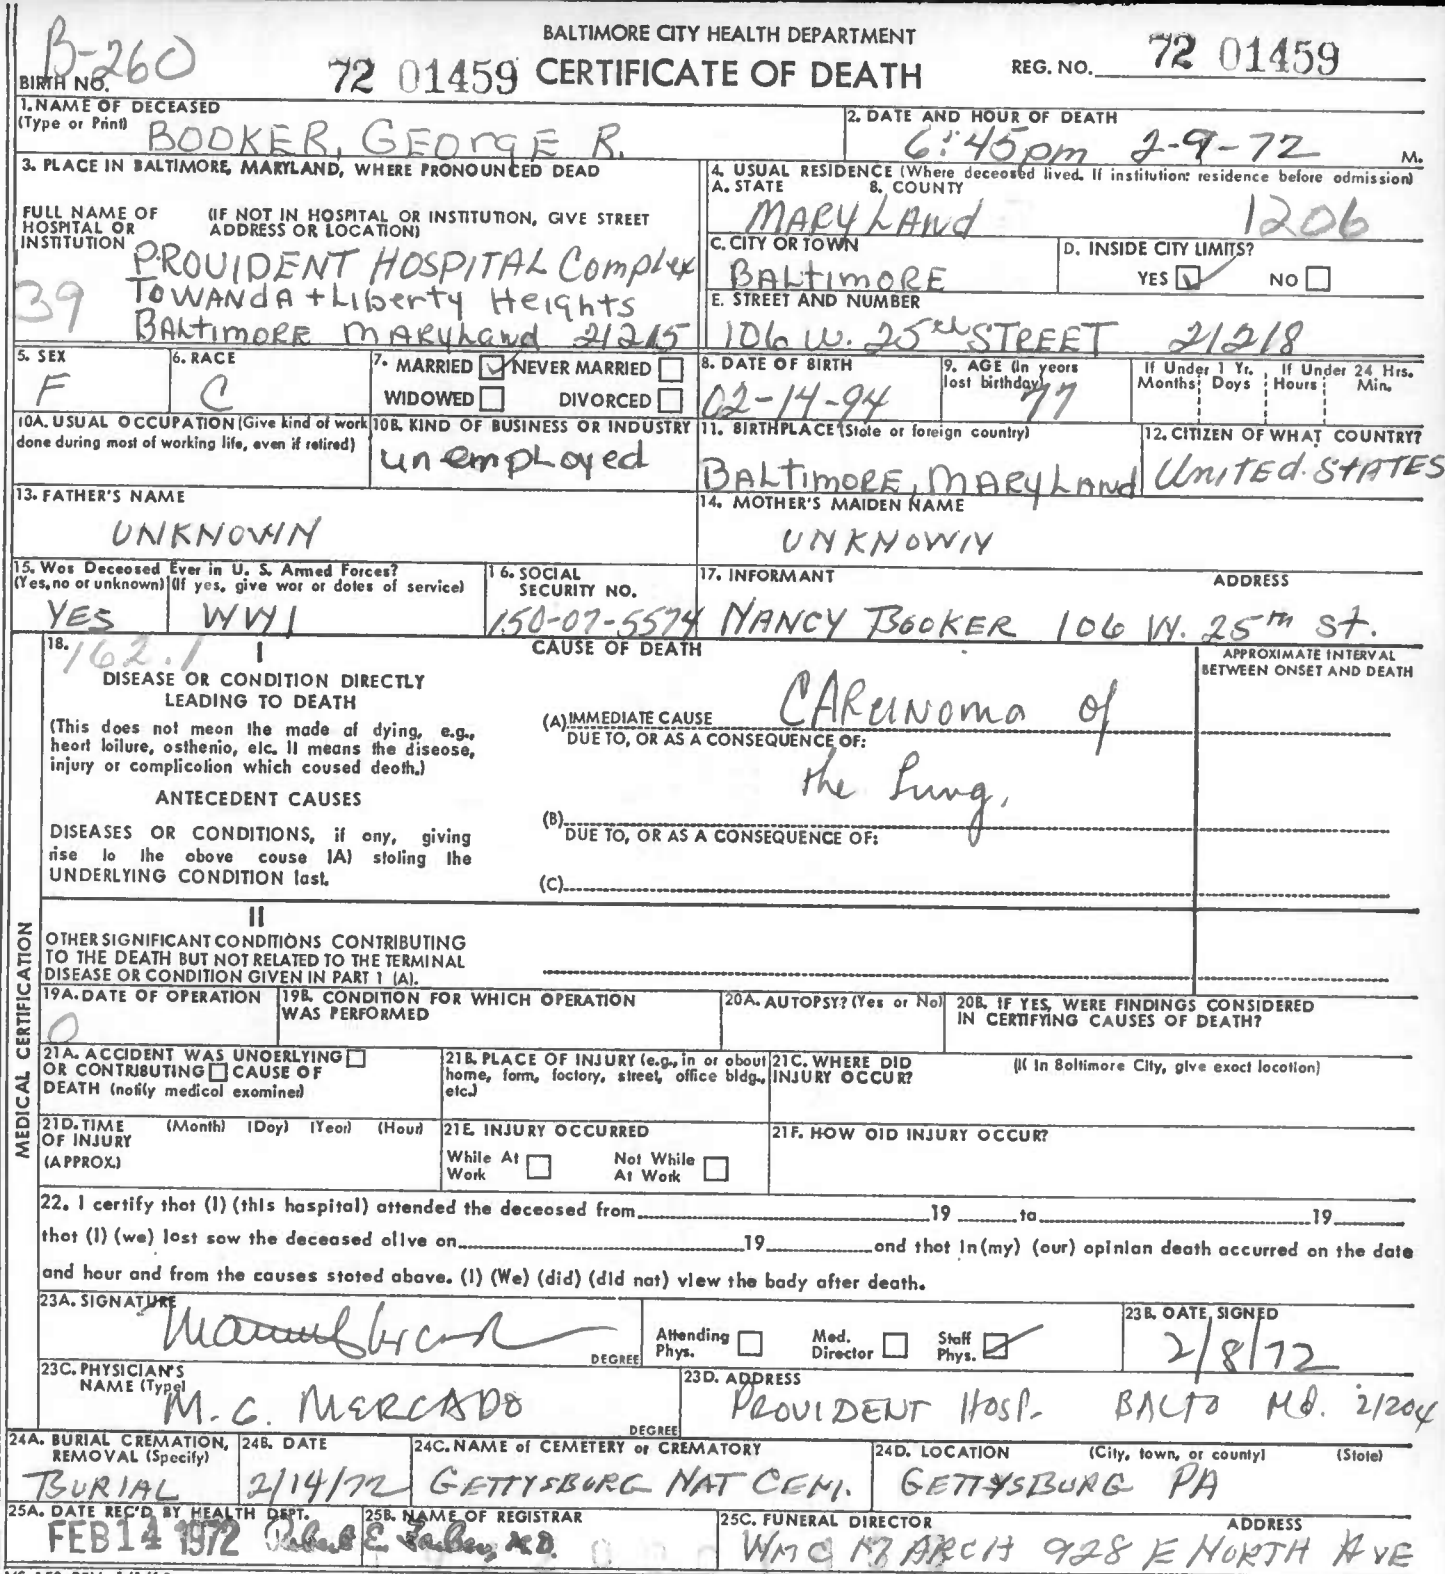 BALTIMORE CITY HEALTH DEPARTMENT
B-260
BIRTH NO.
72 01459 CERTIFICATE OF DEATH
REG. NO. 72 01459
1. NAME OF DECEASED
(Type or Print) BOOKER, GEORGE R.
2. DATE AND HOUR OF DEATH
6:45pm 2-9-72 M.
3. PLACE IN BALTIMORE, MARYLAND, WHERE PRONOUNCED DEAD
FULL NAME OF HOSPITAL OR INSTITUTION
(IF NOT IN HOSPITAL OR INSTITUTION, GIVE STREET ADDRESS OR LOCATION)
PROVIDENT HOSPITAL Complex
39
TOWANDA + Liberty Heights
BALtIMORE MARYLand 21215
4. USUAL RESIDENCE (Where deceased lived. If institution: residence before admission)
A. STATE B. COUNTY
MARYLAnd 1206
C. CITY OR TOWN
BALTIMORE
D. INSIDE CITY LIMITS?
YES NO
E. STREET AND NUMBER
106 W. 25th STREET 21218
5. SEX
F
6. RACE
C
7. MARRIED NEVER MARRIED
WIDOWED DIVORCED
8. DATE OF BIRTH
02-14-94
9. AGE (In years last birthday)
77
If Under 1 Yr. Months Days
If Under 24 Hrs. Hours Min.
10A. USUAL OCCUPATION (Give kind of work done during most of working life, even if retired)
10B. KIND OF BUSINESS OR INDUSTRY
unemployed
11. BIRTHPLACE (State or foreign country)
BALTIMORE, MARYLAnd
12. CITIZEN OF WHAT COUNTRY?
UNITED STATES
13. FATHER'S NAME
UNKNOWN
14. MOTHER'S MAIDEN NAME
UNKNOWN
15. Was Deceased Ever in U. S. Armed Forces?
(Yes, no or unknown) (If yes, give war or dates of service)
YES WW1
16. SOCIAL SECURITY NO.
150-07-5574
17. INFORMANT ADDRESS
NANCY BOOKER 106 W. 25TH St.
MEDICAL CERTIFICATION
18. 162.1 I
CAUSE OF DEATH
APPROXIMATE INTERVAL BETWEEN ONSET AND DEATH
DISEASE OR CONDITION DIRECTLY
LEADING TO DEATH
(This does not mean the mode of dying, e.g.,
heart failure, asthenia, etc. It means the disease,
injury or complication which caused death.)
(A) IMMEDIATE CAUSE CARcINOMA of
DUE TO, OR AS A CONSEQUENCE OF:
the Lung.
ANTECEDENT CAUSES
DISEASES OR CONDITIONS, if any, giving
rise to the above cause (A) stating the
UNDERLYING CONDITION last.
(B)
DUE TO, OR AS A CONSEQUENCE OF:
(C)
II
OTHER SIGNIFICANT CONDITIONS CONTRIBUTING
TO THE DEATH BUT NOT RELATED TO THE TERMINAL
DISEASE OR CONDITION GIVEN IN PART 1 (A).
19A. DATE OF OPERATION
0
19B. CONDITION FOR WHICH OPERATION WAS PERFORMED
20A. AUTOPSY? (Yes or No)
20B. IF YES, WERE FINDINGS CONSIDERED IN CERTIFYING CAUSES OF DEATH?
21A. ACCIDENT WAS UNDERLYING
OR CONTRIBUTING CAUSE OF
DEATH (notify medical examiner)
21B. PLACE OF INJURY (e.g., in or about home, farm, factory, street, office bldg., etc.)
21C. WHERE DID INJURY OCCUR?
(If in Baltimore City, give exact location)
21D. TIME OF INJURY (APPROX.)
(Month) (Day) (Year) (Hour)
21E. INJURY OCCURRED
While At Work Not While At Work
21F. HOW DID INJURY OCCUR?
22. I certify that (I) (this hospital) attended the deceased from 19 to 19
that (I) (we) last saw the deceased alive on 19 and that in (my) (our) opinion death occurred on the date
and hour and from the causes stated above. (I) (We) (did) (did not) view the body after death.
23A. SIGNATURE
DEGREE
Attending Phys. Med. Director Staff Phys.
23B. DATE SIGNED
2/8/72
23C. PHYSICIAN'S NAME (Type)
M. C. MERCADO
DEGREE
23D. ADDRESS
PROVIDENT HOSP. BALTO Md. 21204
24A. BURIAL CREMATION, REMOVAL (Specify)
BURIAL
24B. DATE
2/14/72
24C. NAME of CEMETERY or CREMATORY
GETTYSBURG NAT CEM.
24D. LOCATION (City, town, or county) (State)
GETTYSBURG PA
25A. DATE REC'D BY HEALTH DEPT.
FEB 14 1972
25B. NAME OF REGISTRAR
Robert E. Farber, M.D.
25C. FUNERAL DIRECTOR ADDRESS
WM C MARCH 928 E NORTH AVE